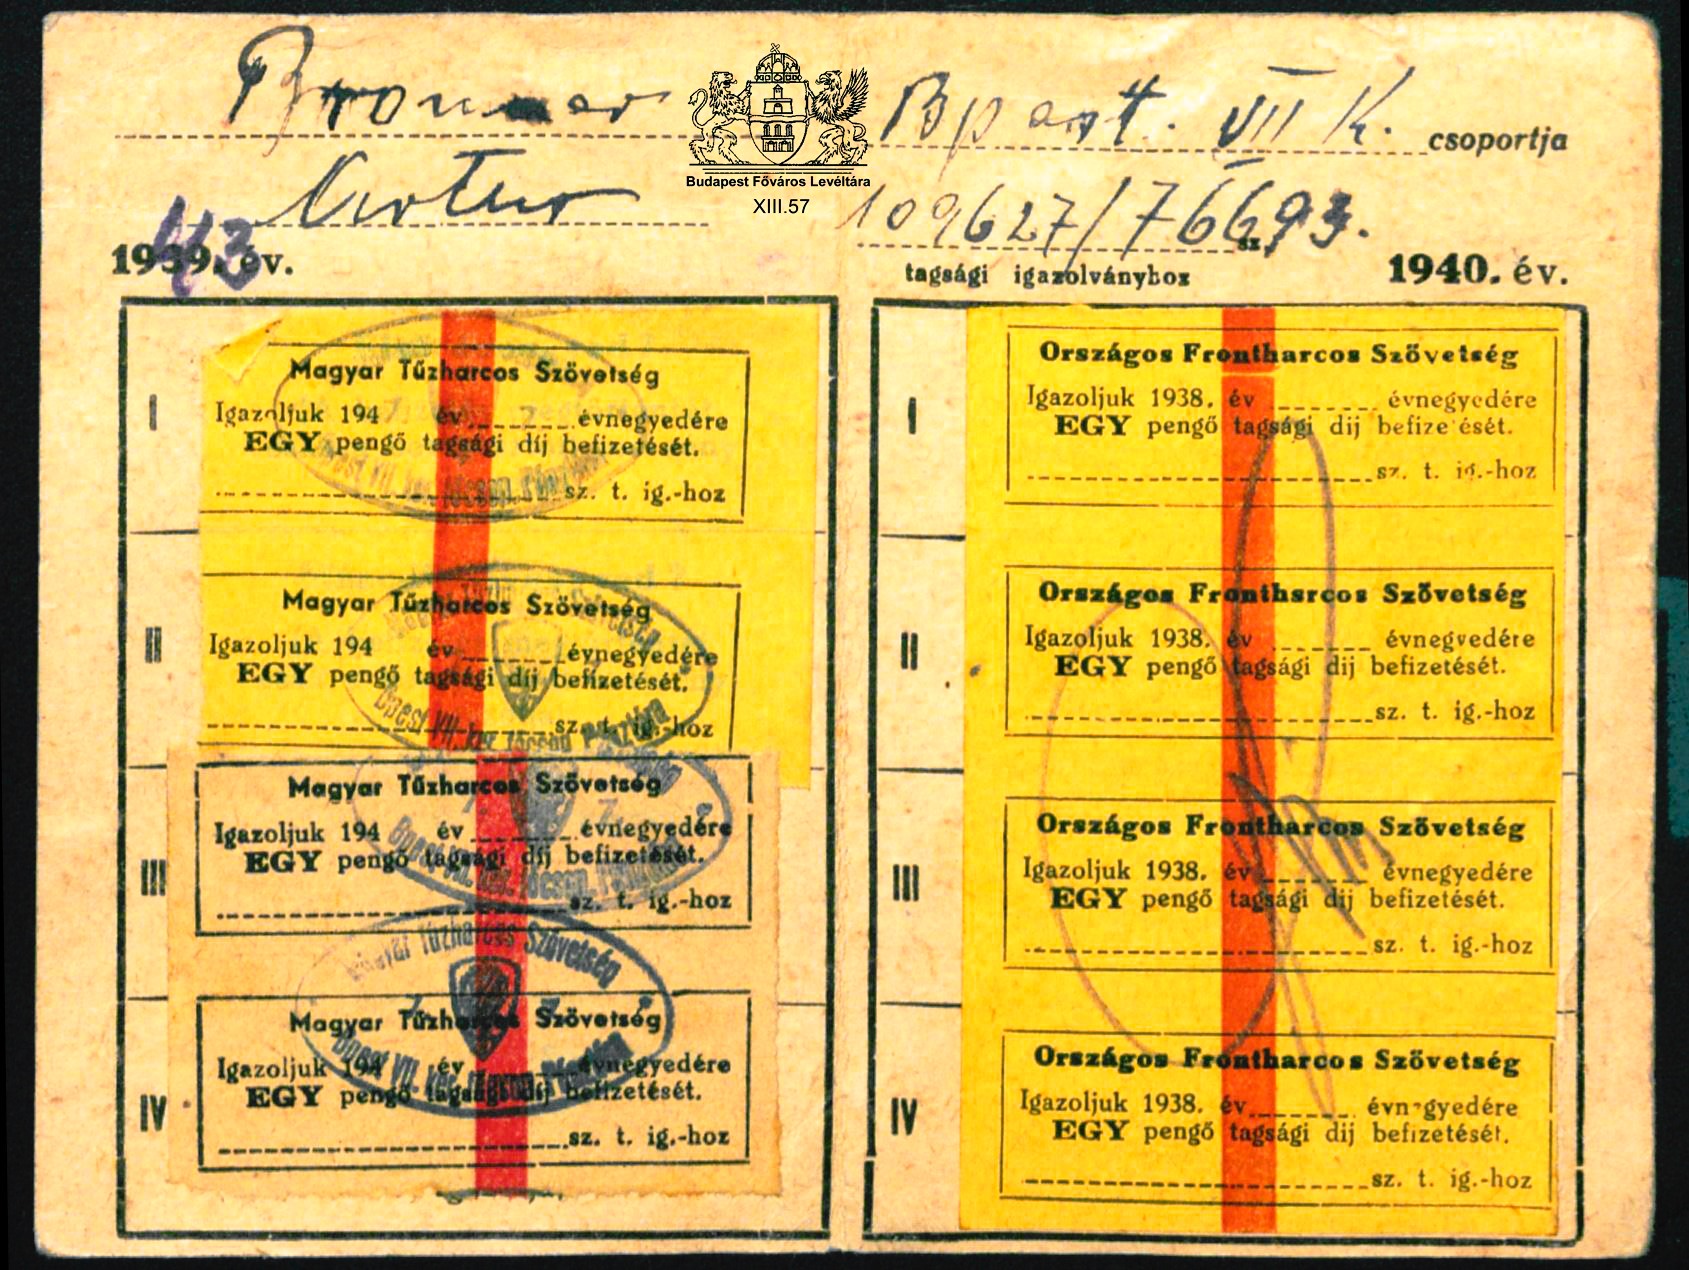 Artur
Budapest Főváros Levéltára
XIII.57
Bpest. VII K. csoportja
109627/76693.
sz
tagsági igazolványhoz
1939. év.
43
1940. év.
I
Magyar Tűzharcos Szövetség
Igazoljuk 194 7 év 7 évnegyedére
EGY pengő tagsági díj befizetését.
sz. t. ig.-hoz
II
Magyar Tűzharcos Szövetség
Igazoljuk 194 év évnegyedére
EGY pengő tagsági díj befizetését.
sz. t. ig.-hoz
Magyar Tűzharcos Szövetség
Bpest VII. ker. főcsop. Pénztára
III
Magyar Tűzharcos Szövetség
Igazoljuk 194 év évnegyedére
EGY pengő tagsági díj befizetését.
sz. t. ig.-hoz
IV
Magyar Tűzharcos Szövetség
Igazoljuk 194 év évnegyedére
EGY pengő tagsági díj befizetését.
sz. t. ig.-hoz
Magyar Tűzharcos Szövetség
Bpest VII. ker.
I
Országos Frontharcos Szövetség
Igazoljuk 1938. év évnegyedére
EGY pengő tagsági dij befizetését.
sz. t. ig.-hoz
II
Országos Frontharcos Szövetség
Igazoljuk 1938. év évnegyedére
EGY pengő tagsági dij befizetését.
sz. t. ig.-hoz
III
Országos Frontharcos Szövetség
Igazoljuk 1938. év évnegyedére
EGY pengő tagsági dij befizetését.
sz. t. ig.-hoz
IV
Országos Frontharcos Szövetség
Igazoljuk 1938. év évnegyedére
EGY pengő tagsági dij befizetését.
sz. t. ig.-hoz